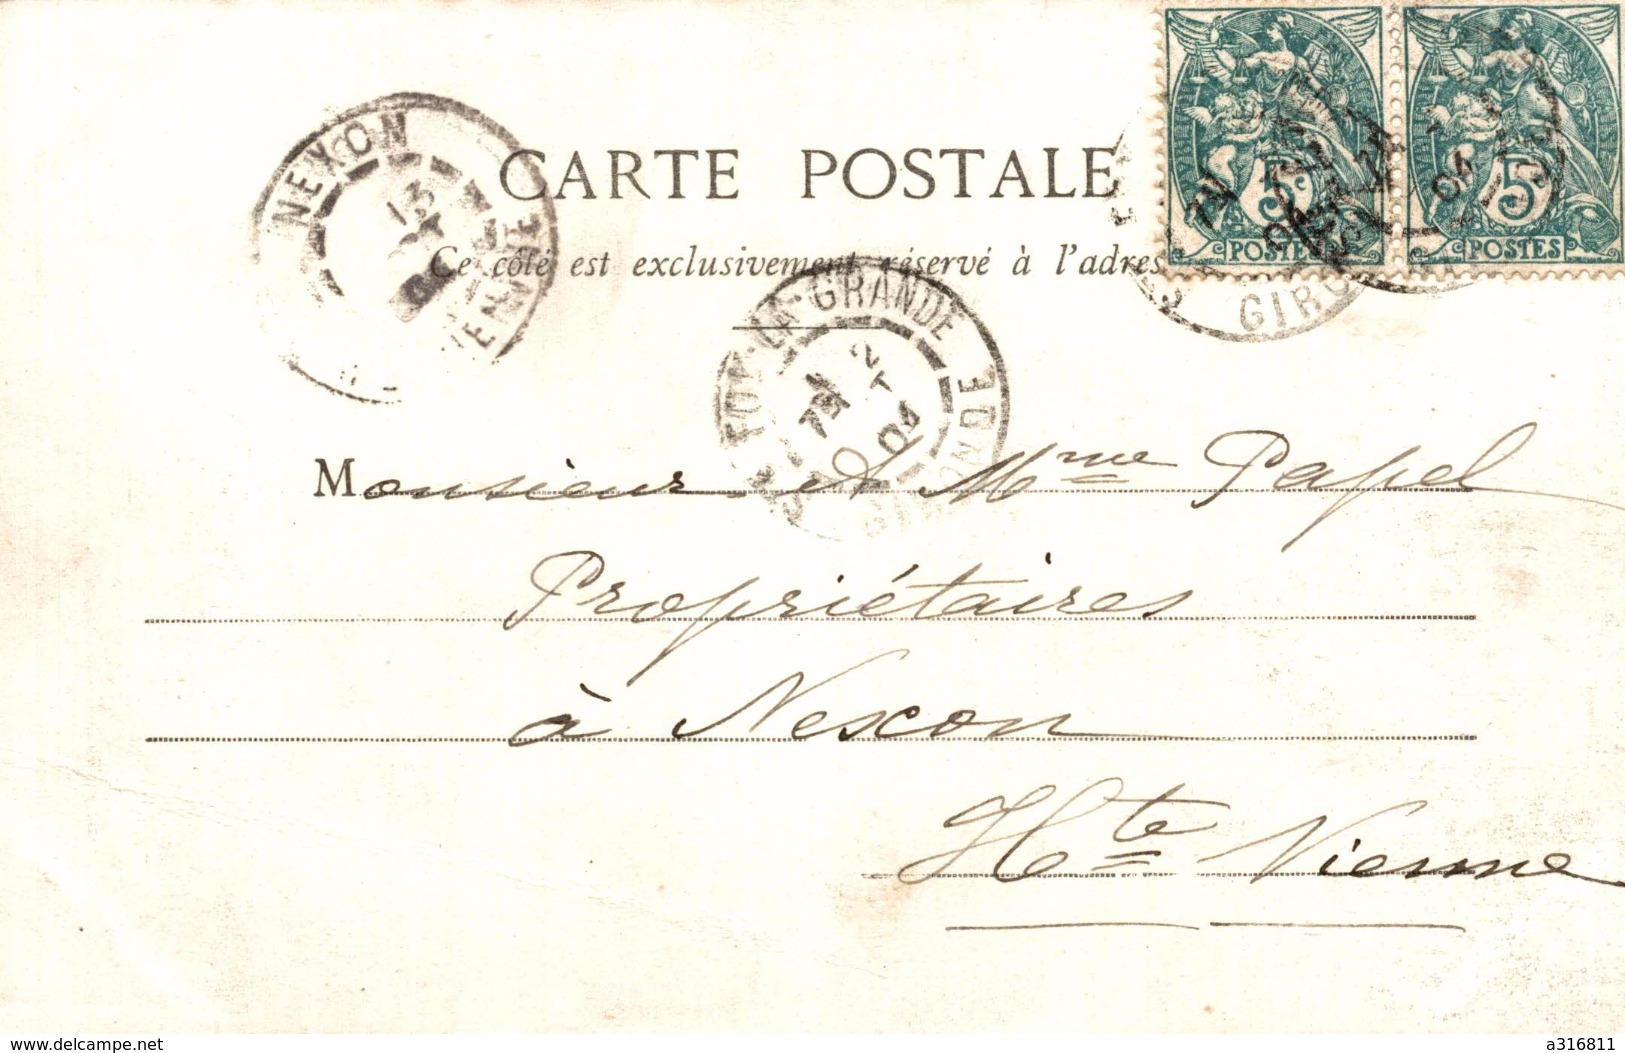 CARTE POSTALE
Ce côté est exclusivement réservé à l'adres
5c 5
POSTES POSTES
NEXON
13
VIENNE
FOY-LA-GRANDE
GIRONDE
7E 12
04
GIRO
04
Monsieur et Mme Papel
Propriétaires
à Nexon
Hte Vienne
delcampe.net
a316811